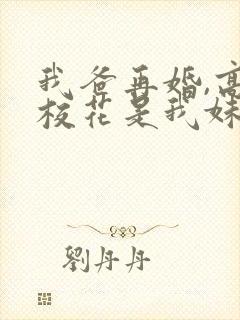 我爸再婚,高
校花是我妹
劉丹丹